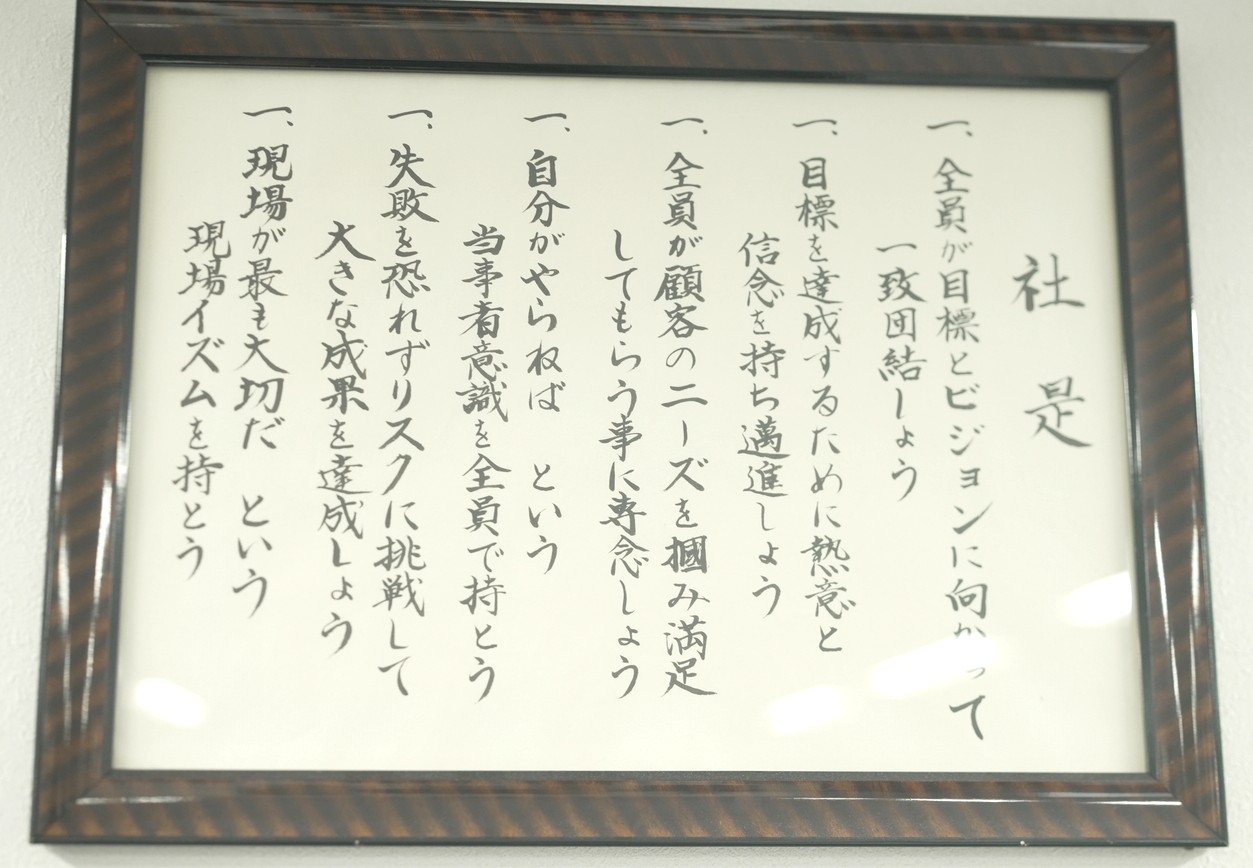 社是
一、全員が目標とビジョンに向かって
一致団結しょう
一、目標を達成するために熱意と
信念を持ち邁進しょう
一、全員が顧客のニーズを掴み満足
してもらう事に専念しょう
一、自分がやらねば という
当事者意識を全員で持とう
一、失敗を恐れずリスクに挑戦して
大きな成果を達成しょう
一、現場が最も大切だ という
現場イズムを持とう